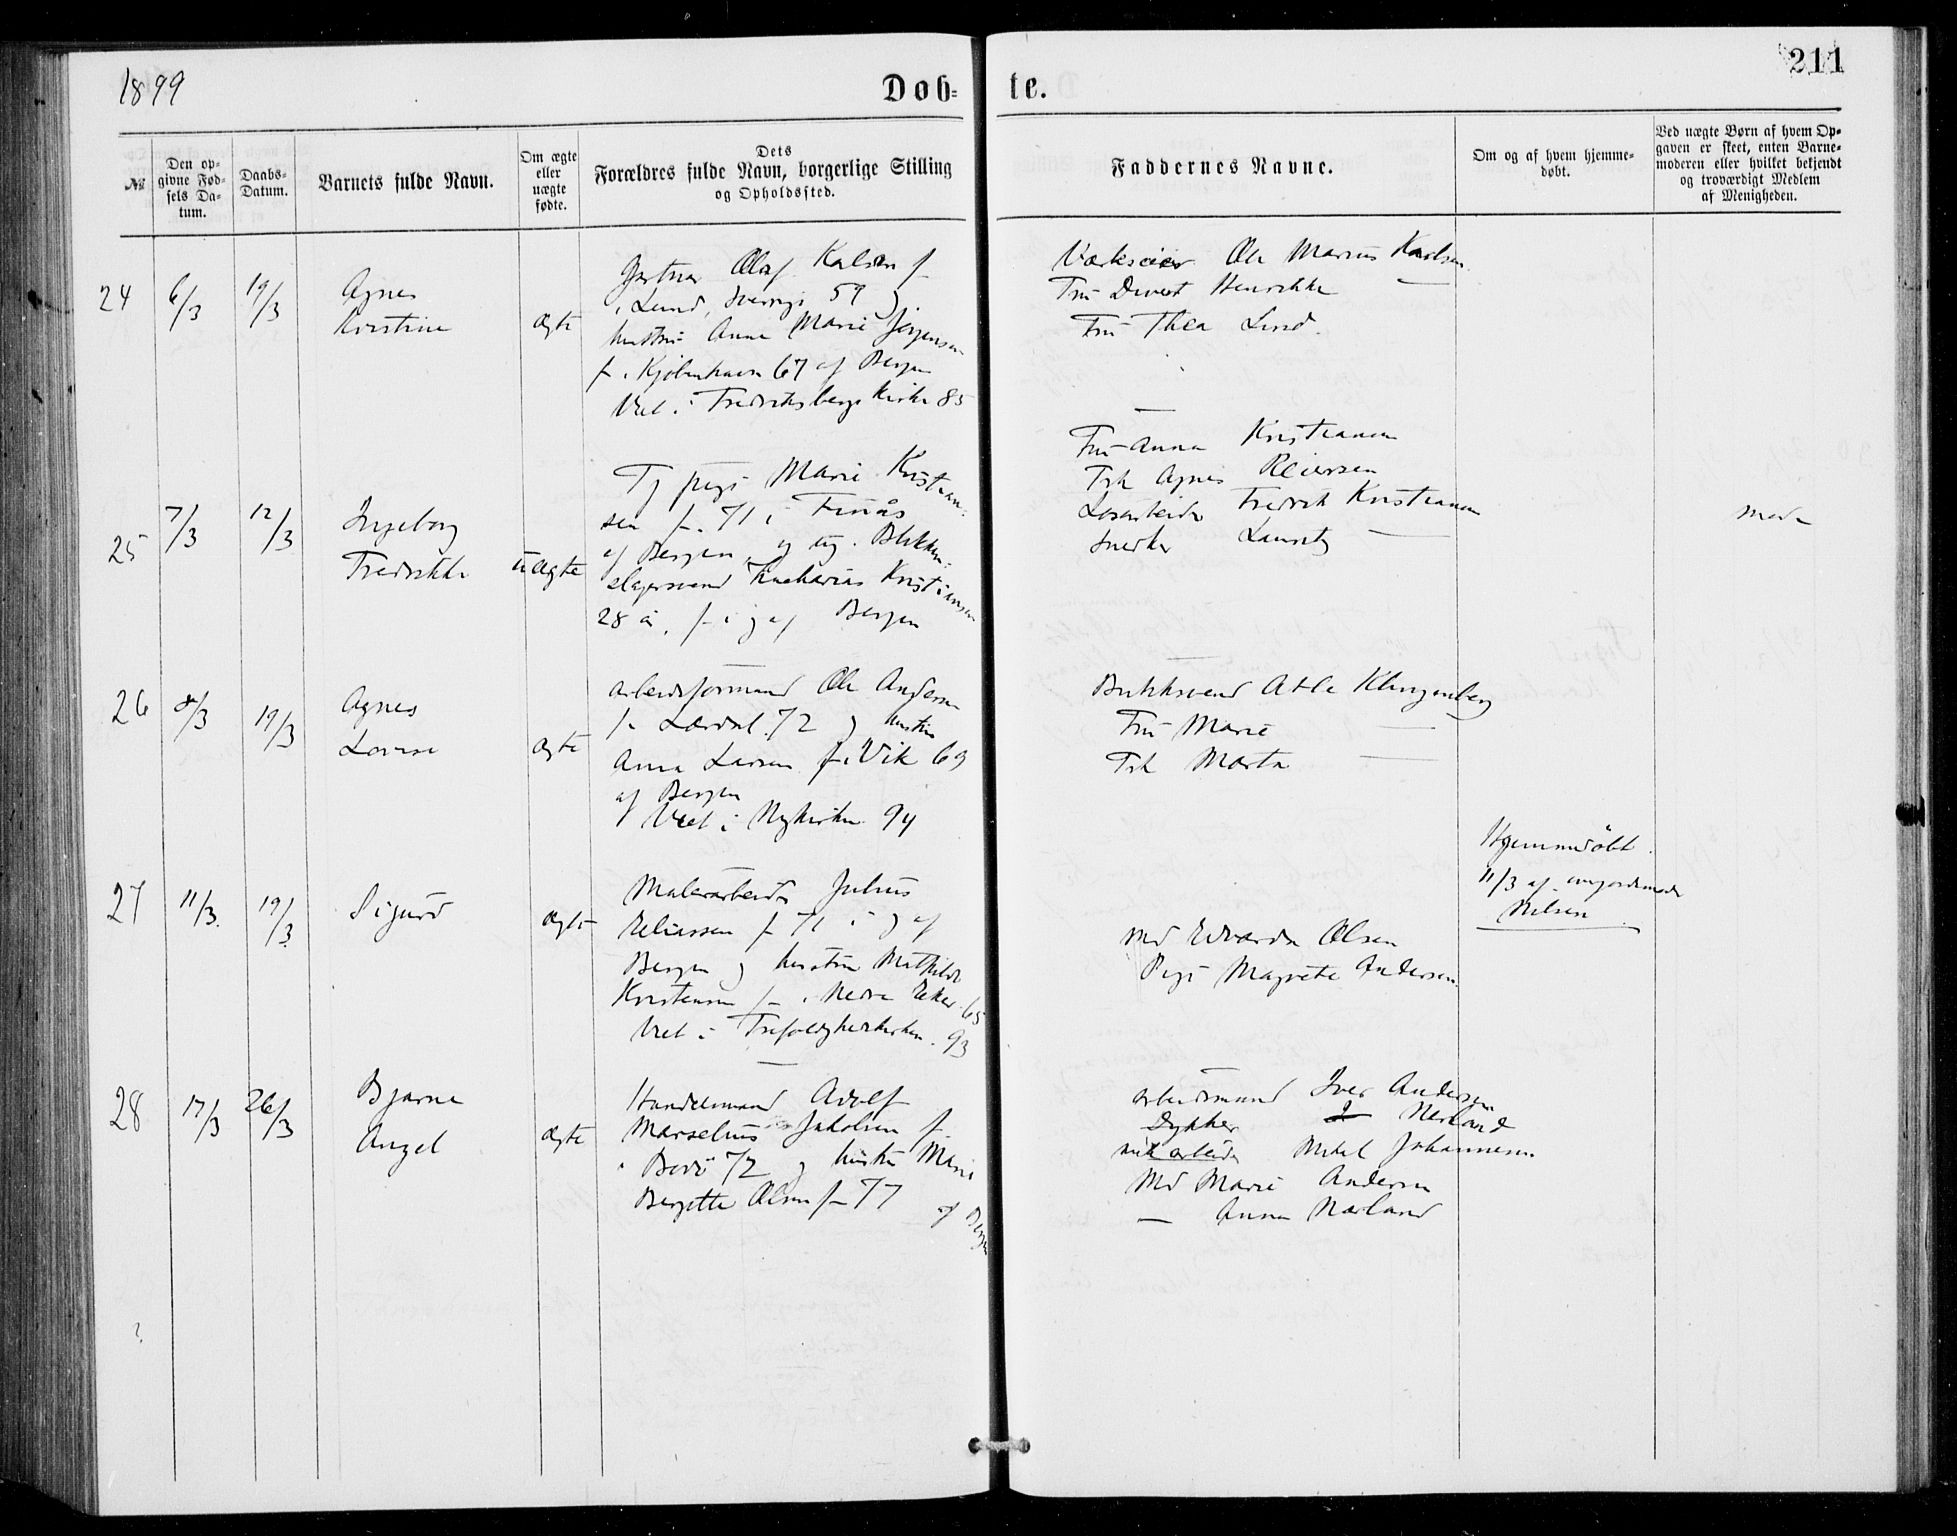 1899
Døb-
te.
211
№
Den op-
givne Fød-
sels Da-
tum.
Daabs-
Datum.
Barnets fulde Navn.
Om ægte
eller
uægte
fødte.
Dets
Forældres fulde Navn, borgerlige Stilling
og Opholdssted.
Faddernes Navne.
Om og af hvem hjemme-
døbt.
Ved uægte Børn af hvem Op-
gaven er skeet, enten Barne-
moderen eller hvilket bekjendt
og troværdigt Medlem
af Menigheden.
24
6/3
19/3
Agnes
Kristine
ægte
Gartner Olaf Kalsen f
i Lund, Sverige 59 og
hustru Anna Marie Jörgensen
f. i Kjöbenhavn 67 af Bergen
Viet i Fredriksbergs Kirke 85
Værkseier Ole Marius Karlsen
Fru Henrikke —
Fru Thea Lund.
25
7/3
12/3
Ingeborg
Fredrikke
uægte
Tj pige Marie Kristian-
sen f. 71 i Finås
af Bergen, og ug. Blikken-
slagersvend Zacharias Kristiansen
28 år, f. i og af Bergen
Fru Anna Kristiansen
Frk Agnes Reiersen
Løsarbeider Fredrik Kristiansen
Snedker Lauritz —
26
8/3
19/3
Agnes
Lovise
ægte
Arbeidsformand Ole Andersen
f i Lærdal 72 og hustru
Anna Larsen f. i Vik 69
af Bergen
Viet i Nykirken 94
Butiksvend Atle Klingenberg
Fru Marie —
Frk Marta —
27
11/3
19/3
Sigurd
ægte
Malerarbeider Julius
Eliassen f 71 i og af
Bergen og hustru Mathilde
Kristensen f i Nedre Eker 65
Viet i Trefoldighedskirken 93
Md Edvarda Olsen
Pige Magrete Andersen
Hjemmedöbt
11/3 af
Nilsen
28
17/3
26/3
Bjarne
Angel
ægte
Handelsmand Adolf
Marselius Jakobsen f.
i Bodö 72 og hustru Marie
Bergitte Olsen f 77
af Bergen
Arbeidsmand Iver Andersen
Dykker Nerland
arbeider Mikal Johannesen
Md Marie Andersen
— Anna Nærland